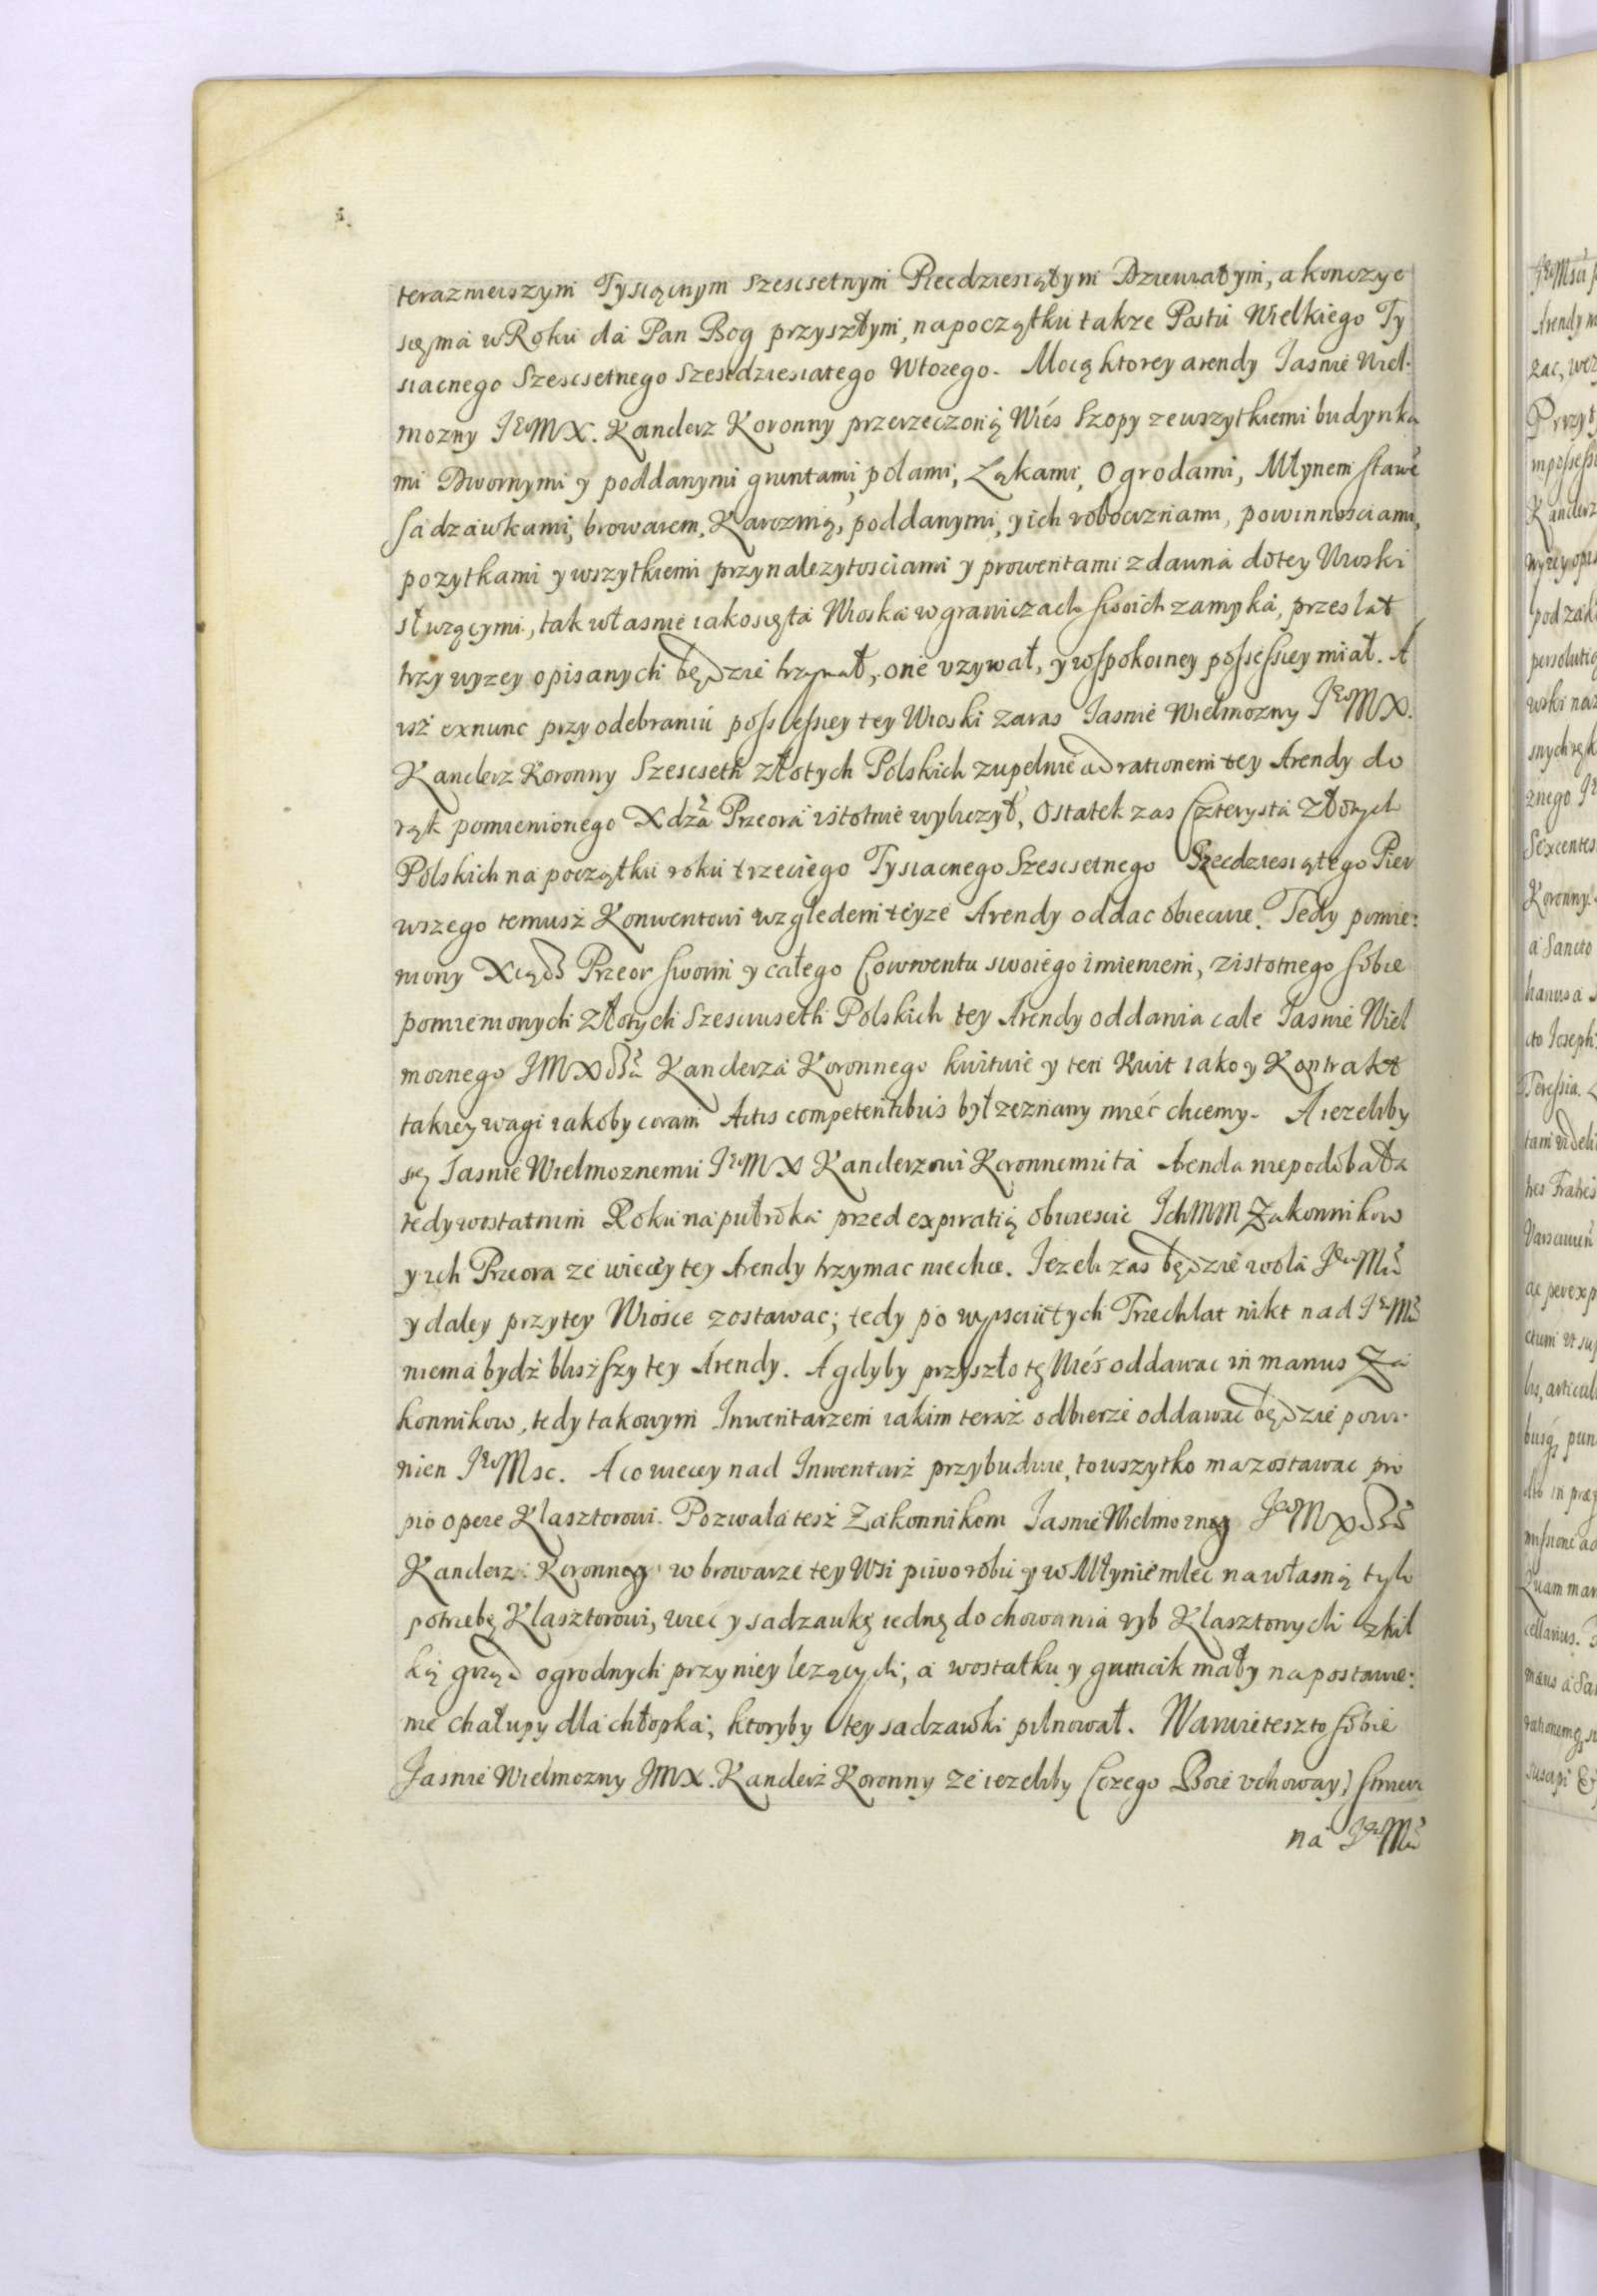 terazmeiszym Tysiącnym Szescsetnym Piecdziesiątym Dziewiatym, a konczyc
się ma w Roku da Pan Bog przyszłym, na początku takze Postu Wielkiego Ty
siacnego Szescsetnego Szescdziesiatego Wtorego. Mocą ktorey arendy Jasnie Wiel:
mozny JeoMX. Kanclerz Koronny przerzeczoną Wiés Szopy ze wszytkiemi budynka
mi Dwornymi y poddanymi gruntami, polami, Ląkami, Ogrodami, Młynem stawē
sadzawkami, browarem, Karczmią, poddanymi, y ich robociznami, powinnosciami,
pozytkami y wszytkiemi przynalezytosciami y prowentami zdawna do tey Wioski
słuzącymi, tak własnie iako się ta Wioska w graniczach swoich zamyka, przes lat
trzy wyzey opisanych będzie trzymał, one vzywał, y w spokoiney possessiey miał. A
isz exnunc przy odebraniu possessiey tey Wioski zaras Jasnie Wielmozny JeoMX.
Kanclerz Koronny Szescseth złotych Polskich zupelnie ad rationem tey Arendy do
rąk pomienionego Xdza Przeora istotnie wyliczył, Ostatek zas Czterysta Złotych
Polskich na początku roku trzeciego Tysiacnego Szescsetnego Szecdziesiątego Pier
wszego temusz Konwentowi względem teyze Arendy oddac obiecuie. Tedy pomie:
niony Xiądz Przeor swoim y całego Conwentu swoiego imieniem, z istotnego sobie
pomienionych Złotych Szesciuseth Polskich tey Arendy oddania cale Jasnie Wiel
moznego JMXdza Kanclerza Koronnego kwituie y ten Kwit iako y Kontrakt
takiey wagi iakoby coram Actis competentibus był zeznany mieć chcemy. A iezeliby
się Jasnie Wielmoznemu JeoMX Kanclerzowi Koronnemu ta Arenda niepodobała
tedy w ostatnim Roku na pułroka przed expiratią obwiescic IchMM Zakonnikow
y ich Przeora ze wiecey tey Arendy trzymac niechce. Iezeli zas będzie wola JeoMsci
y daley przy tey Wiosce zostawac; tedy po wysciu tych Trzech lat nikt nad JeoMsci
niema bydź blisszy tey Arendy. A gdyby przyszło tę Wiés oddawac in manus Za
konnikow, tedy takowym Inwentarzem iakim teraz odbierze oddawac będzie powi:
nien JeoMsc. A co wiecey nad Inwentarz przybuduie, to wszytko ma zostawac pro
pio opere Klasztorowi. Pozwala tesz Zakonnikom Jasnie Wielmozny JeoMXdz
Kanclerz Koronny w browarze tey Wsi piwo robic y w Młynie mlec na własną tylo
potrzebę Klasztorowi, wiec y sadzawkę iednę do chowania ryb Klasztornych z kil
ką grząd ogrodnych przy niey lezących, a w ostatku y gruncik mały na postawie:
nie chałupy dla chłopka, ktoryby tey sadzawki pilnował. Waruie tesz to sobie
Jasnie Wielmozny JMX. Kanclerz Koronny ze iezeliby (czego Boze vchoway) smier
na JeoMsci